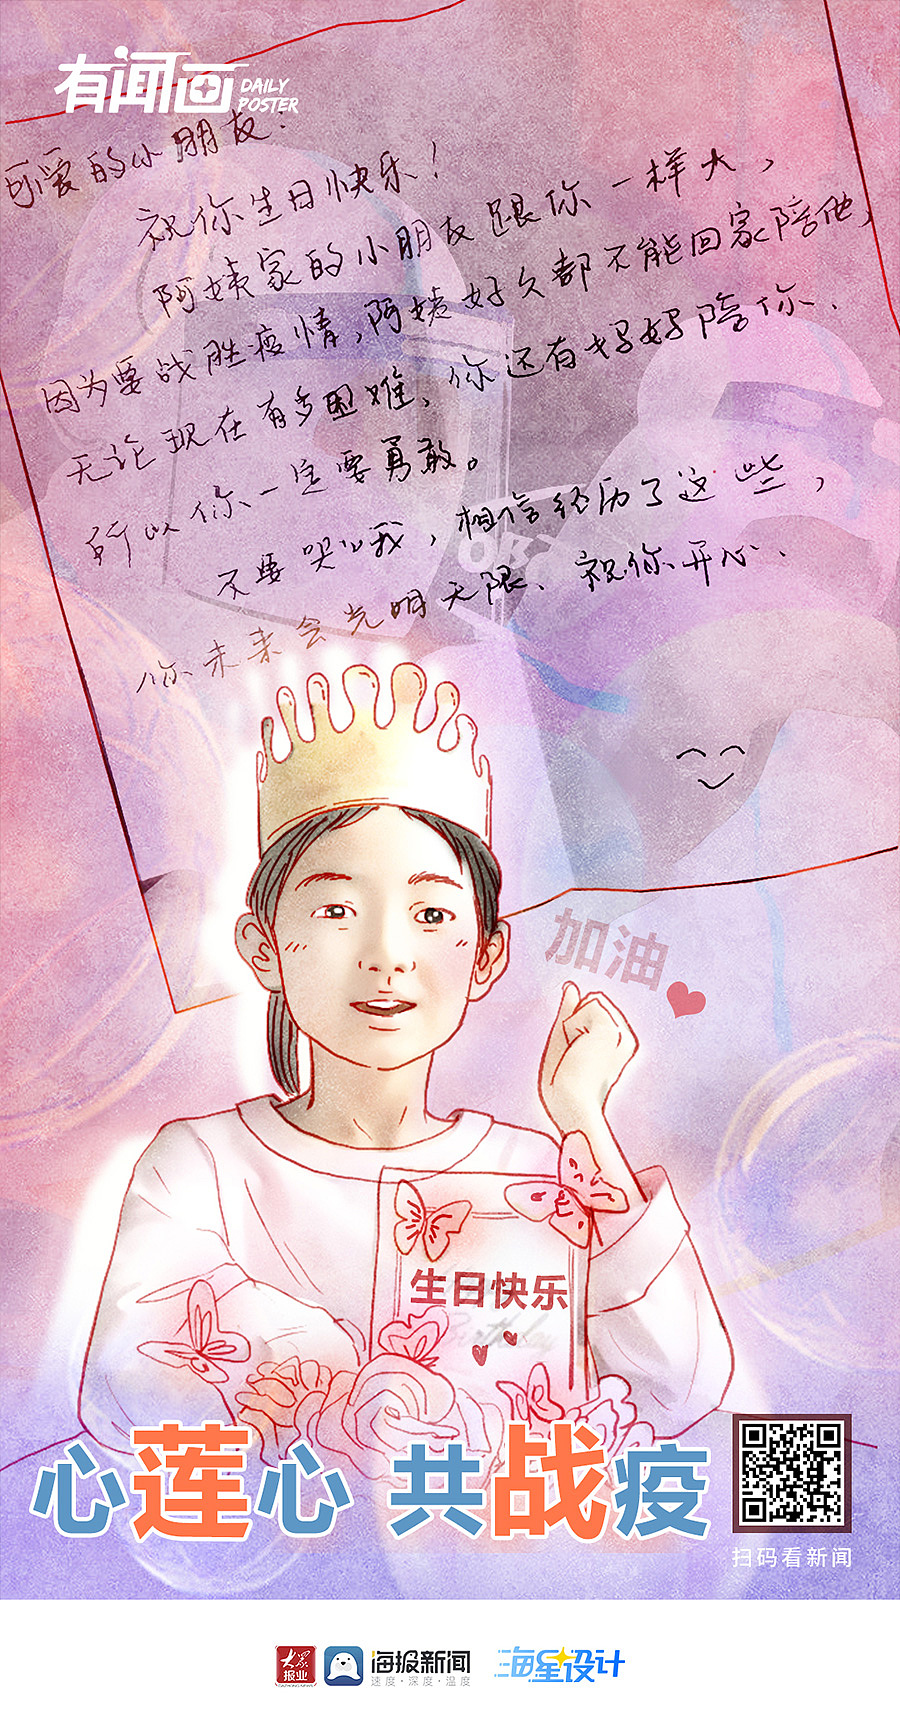 有闻画
DAILY
POSTER
可爱的小朋友：
祝你生日快乐！
阿姨家的小朋友跟你一样大，
因为要战胜疫情，阿姨好久都不能回家陪他，
无论现在有多困难，你还有妈妈陪你．
所以你一定要勇敢。
不要哭哦，相信经历了这些，
你未来会光明无限、祝你开心．
加油
生日快乐
Birthday
心莲心 共战疫
扫码看新闻
大众
报业
海报新闻
速度·深度·温度
海星设计